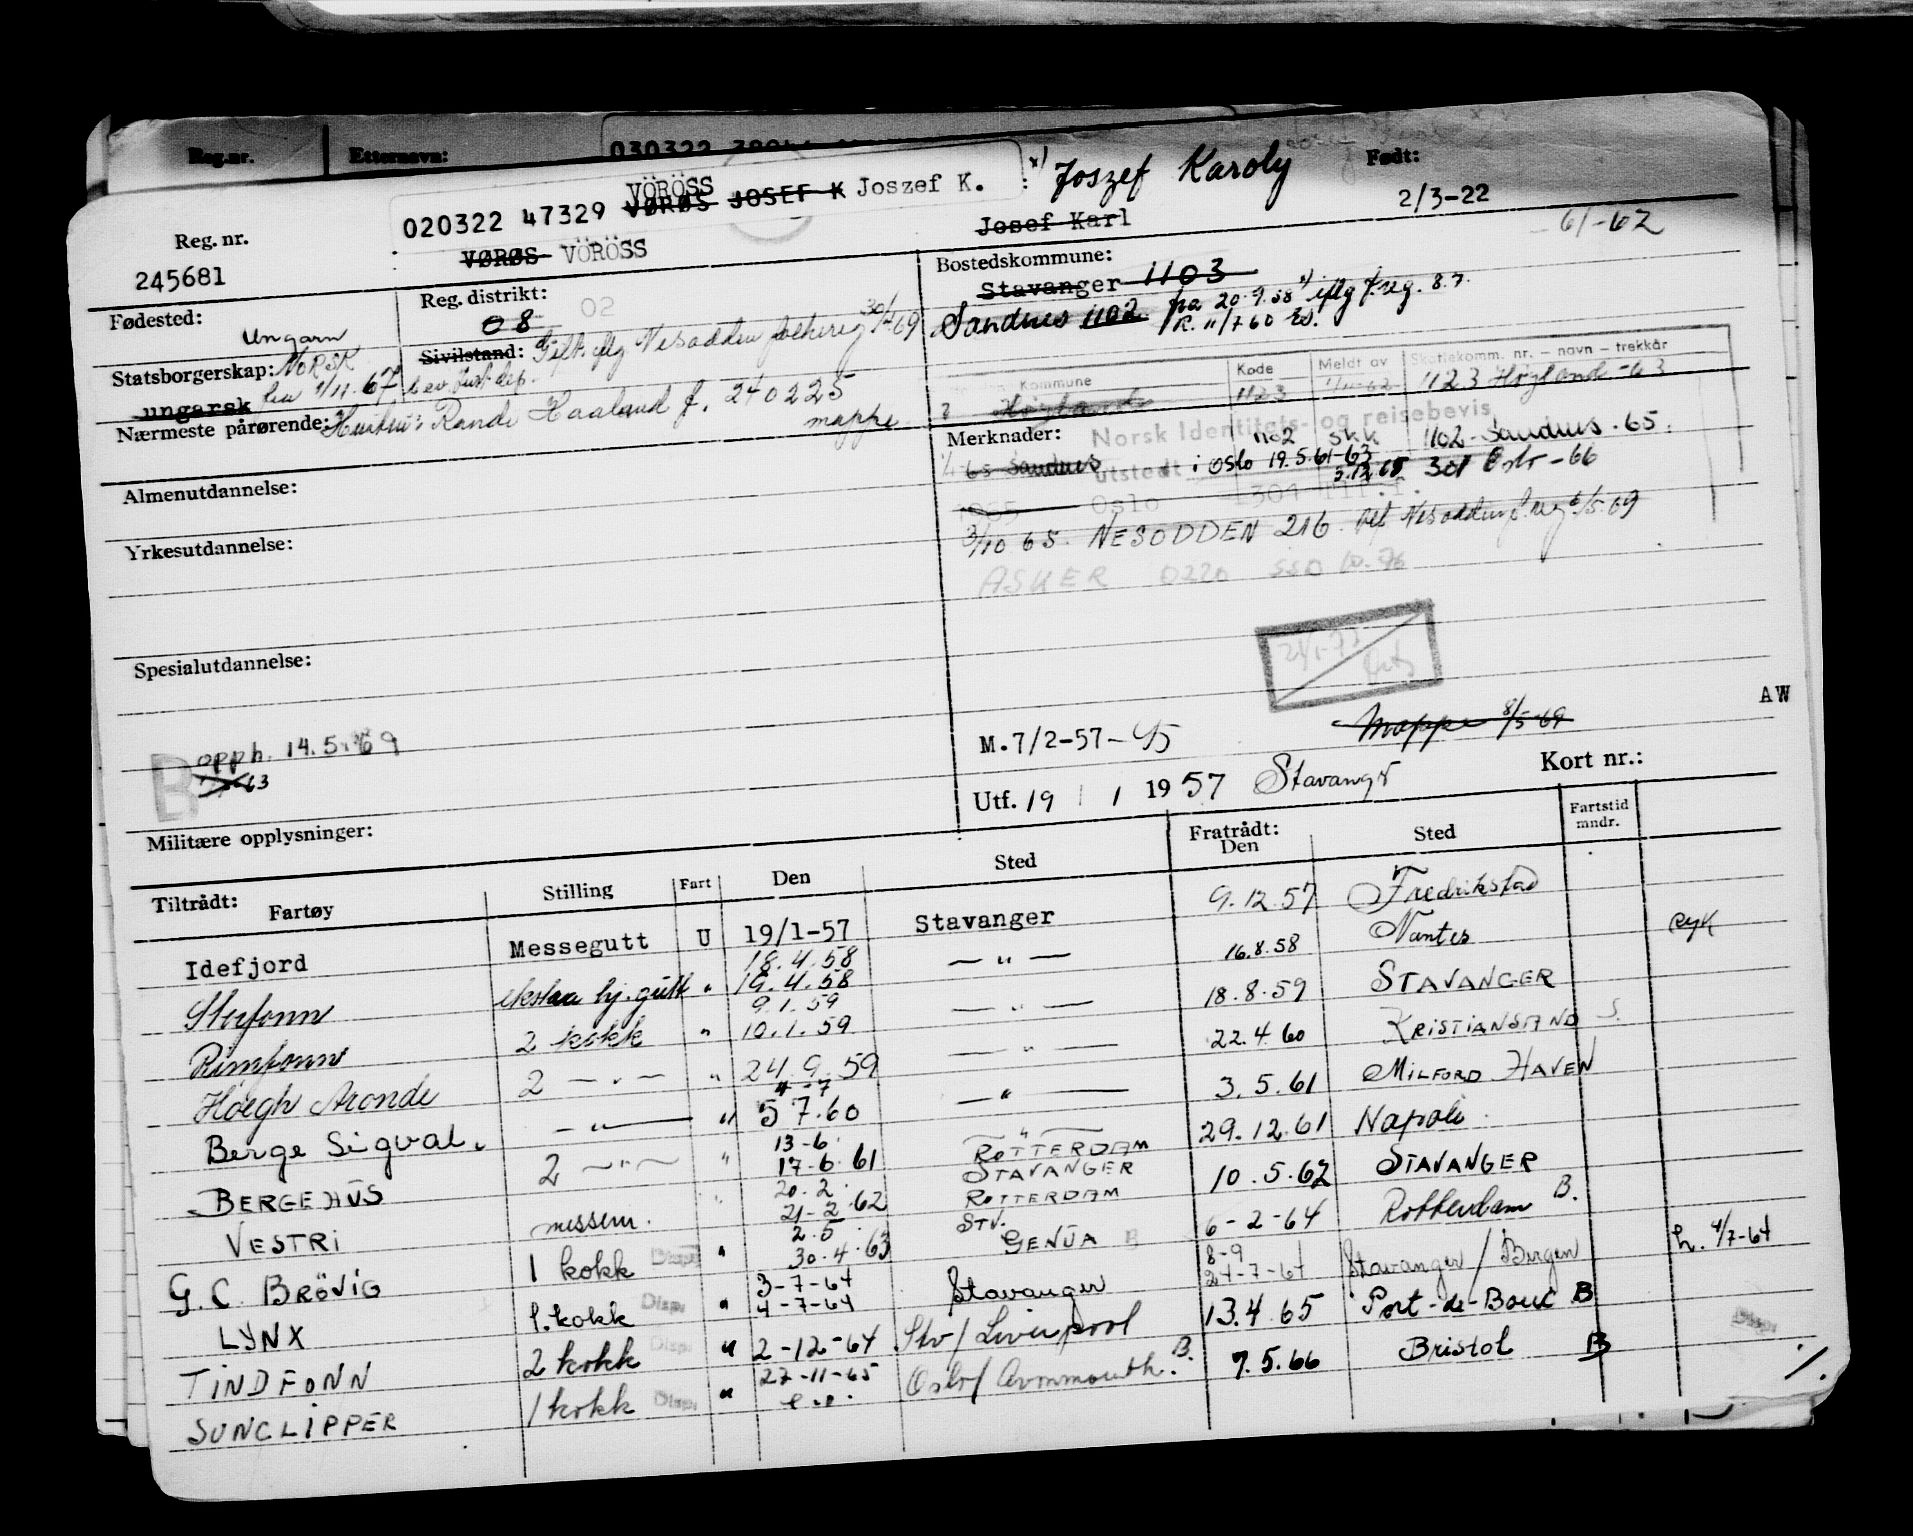 Reg.nr. Etternavn: Født:
VÖRÖSS
020322 47329 VØRØS JOSEF K Joszef K. : x) Joszef Karoly
Josef Karl 2/3-22
Reg. nr. VØRØS VÖRÖSS 61-62
245681
Fødested: Ungarn
Reg. distrikt: 02
08
Bostedskommune:
Stavanger 1103
Sandnes 1102 fra 20.9.58
Statsborgerskap: Norsk
ungarsk fra 1/11.67
Sivilstand: Gift iflg Nesodden folkereg 30/4-69
Kommune Kode Meldt av Skattekomm. nr. – navn – trekkår
Høyland 1123 1123 Høyland -63
Nærmeste pårørende: Hustru: Randi Haaland f. 240225
mappe
Merknader: Norsk Identitets- og reisebevis
1102 SKK 1102 Sandnes - 65.
65 Sandnes utstedt i Oslo 19.5.61-63
3.12.65 301 Oslo - 66
Almenutdannelse:
1965 Oslo 301
3/10 65. NESODDEN 216
Yrkesutdannelse:
ASKER 0220 SSO 10.76
Spesialutdannelse:
AW
B opph. 14.5.69
M.7/2-57-
Mappe 8/5-69
Utf. 19 / 1 1957 Stavanger
Kort nr.:
Militære opplysninger:
Tiltrådt: Fartøy Stilling Fart Den Sted Fratrådt: Den Sted Fartstid mndr.
Idefjord Messegutt U 19/1-57 Stavanger 9.12.57 Fredrikstad
18.4.58
Sterfonn ekstra hj.gutt " 19.4.58 — " — 16.8.58 Nantes Ryk
9.1.59
Rimfonn 2 kokk " 10.1.59 — " — 18.8.59 STAVANGER
Höegh Aronde 2 — " — " 24.9.59 — " — 22.4.60 KRISTIANSAND S.
4-7
Berge Sigval. — " — " 5 7.60 — " — 3.5.61 MILFORD HAVEN
13-6. ROTTERDAM
BERGEHUS 2 — " — " 17-6.61 STAVANGER 29.12.61 Napoli
20.2. ROTTERDAM
VESTRI messem. " 21-2.62 STV. 10.5.62 STAVANGER
2.5
G. C. BRÖVIG 1 kokk Disp. " 30.4.63 GENUA B 6-2-64 Rotterdam B.
3-7-64 8-9
LYNX 1.kokk Disp. " 4-7-64 Stavanger 24-7-64 Stavanger / Bergen h. 4/7-64
TINDFONN 2 kokk Disp. " 2-12-64 Stv / Liverpool 13.4.65 Port-de-Bouc B
27-11-65
SUNCLIPPER 1 kokk Disp. " Oslo / Avonmouth. B. 7.5.66 Bristol B Disp.